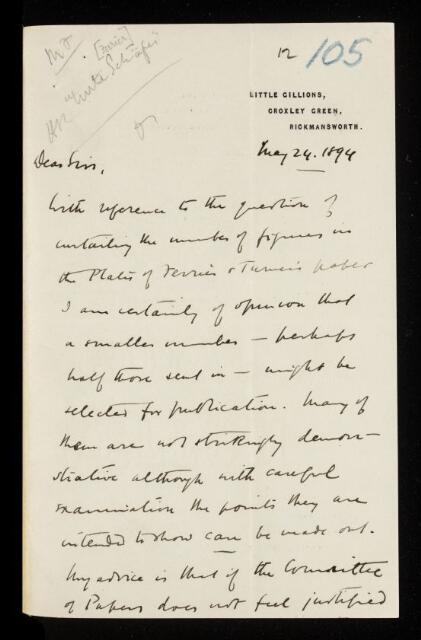 12 105
[Ferrier]
write Schäfer
LITTLE GILLIONS,
CROXLEY GREEN,
RICKMANSWORTH.
May 24. 1894
Dear Sirs,
With reference to the question of
curtailing the number of figures in
the Plates of Ferrier & Turner's paper
I am certainly of opinion that
a smaller number – perhaps
half those sent in – might be
selected for publication. Many of
them are not strikingly demon-
strative although with careful
examination the points they are
intended to show can be made out.
My advice is that if the Committee
of Papers does not feel justified